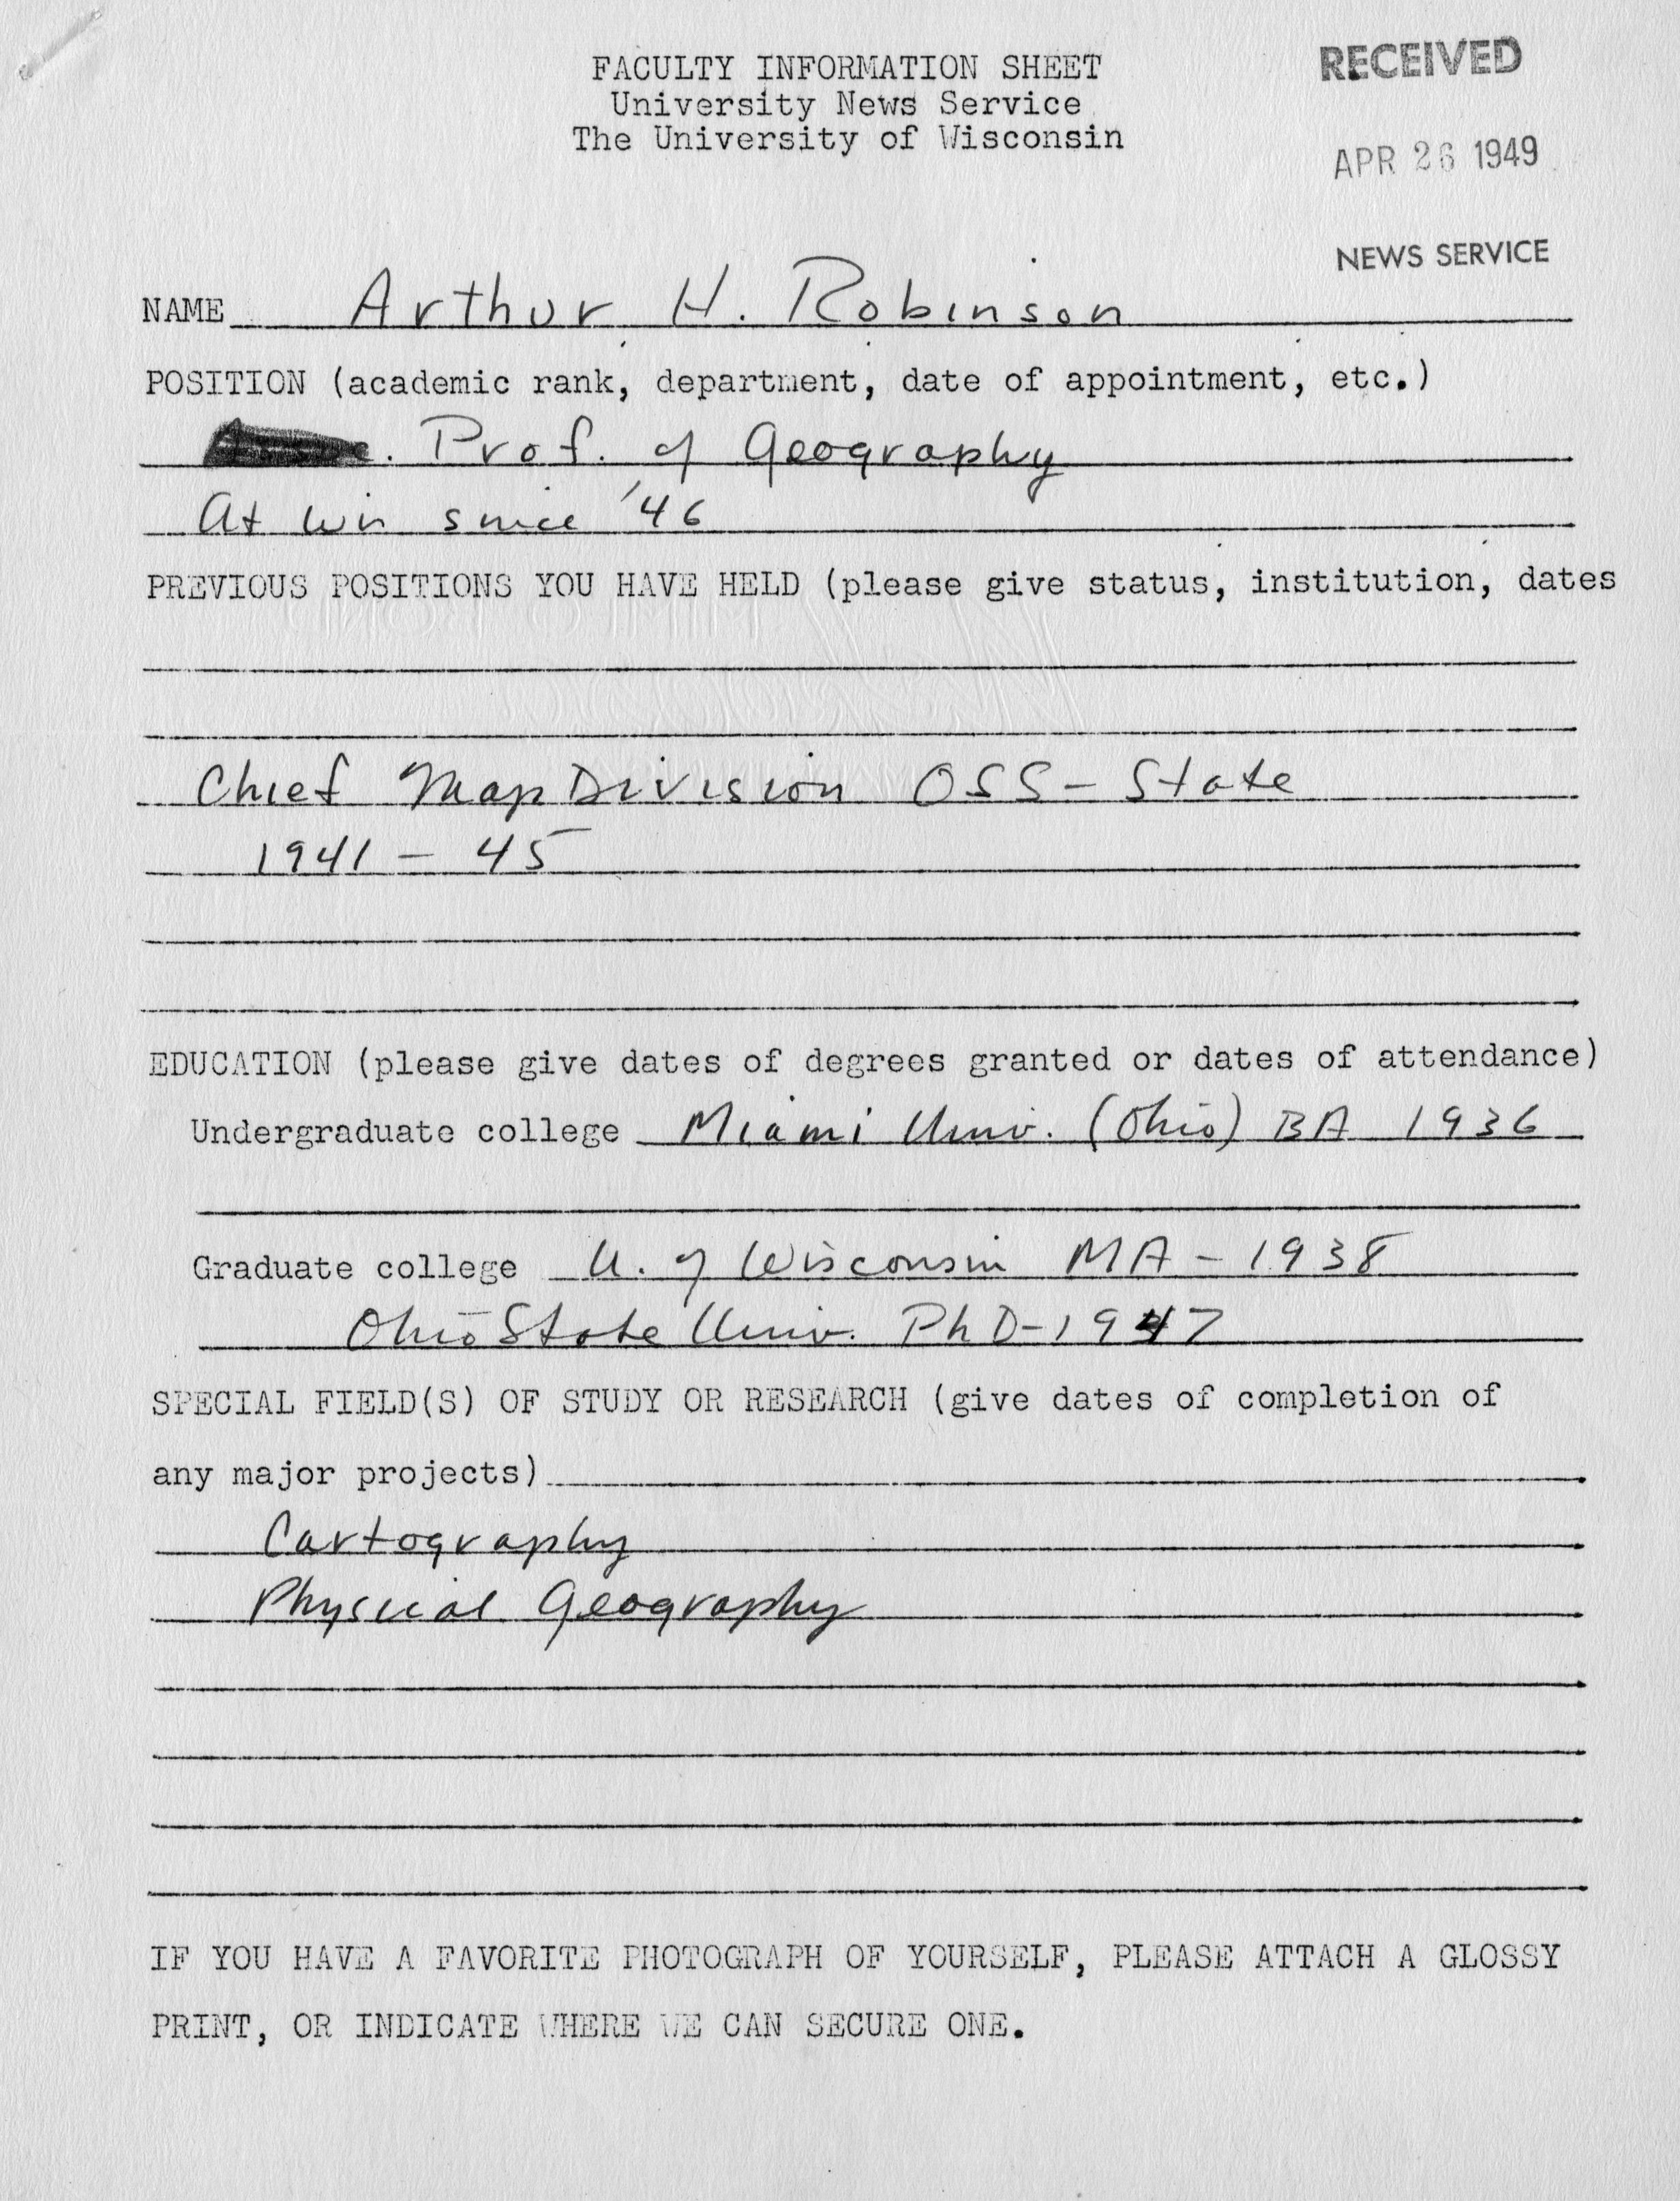 FACULTY INFORMATION SHEET
University News Service
The University of Wisconsin
RECEIVED
APR 26 1949
NEWS SERVICE
NAME Arthur H. Robinson
POSITION (academic rank, department, date of appointment, etc.)
. Prof. of Geography
At Wis since '46
PREVIOUS POSITIONS YOU HAVE HELD (please give status, institution, dates
Chief Map Division OSS - State
1941 - 45
EDUCATION (please give dates of degrees granted or dates of attendance)
Undergraduate college Miami Univ. (Ohio) BA 1936
Graduate college U. of Wisconsin MA - 1938
Ohio State Univ. PhD - 1947
SPECIAL FIELD(S) OF STUDY OR RESEARCH (give dates of completion of
any major projects)
Cartography
Physical Geography
IF YOU HAVE A FAVORITE PHOTOGRAPH OF YOURSELF, PLEASE ATTACH A GLOSSY
PRINT, OR INDICATE WHERE WE CAN SECURE ONE.